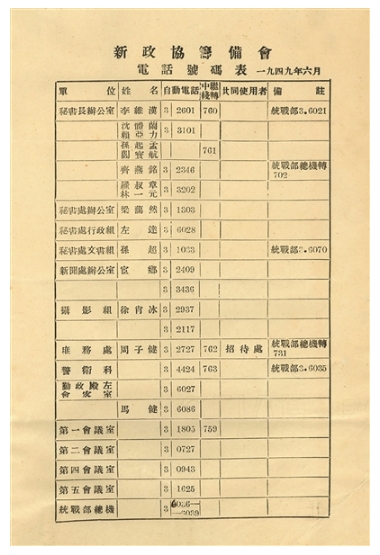 新政協籌備會
電話號碼表 一九四九年六月
單位 姓名 自動電話 中繼線轉 共同使用者 備註
秘書長辦公室 李維漢 3 2601 760 統戰部3.6021
沈德蘭 賴亞力 3 3101
孫起孟 閻寶航 761
齊燕銘 3 2346 統戰部總機轉702
羅叔章 林一元 3 3202
秘書處辦公室 梁藹然 3 1303
秘書處行政組 左達 3 6028
秘書處文書組 孫超 3 1033 統戰部3.6070
新聞處辦公室 宦鄉 3 2409
3 3436
攝影組 徐肖冰 3 2937
3 2117
庶務處 周子健 3 2727 762 招待處 統戰部總機轉731
警衛科 3 4424 763 統戰部3.6035
勤政殿左會客室 3 6027
馬健 3 6086
第一會議室 3 1805 759
第二會議室 3 0727
第四會議室 3 0943
第五會議室 3 1625
統戰部總機 3 6036——6039